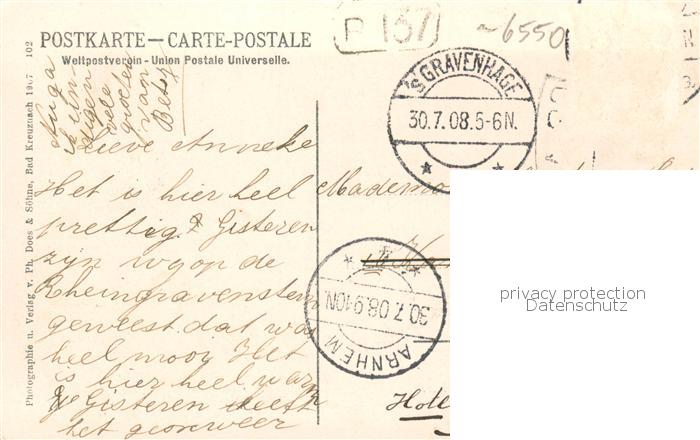 R 137
~6550
POSTKARTE — CARTE-POSTALE
Weltpostverein - Union Postale Universelle.
'S GRAVENHAGE
30.7.08.5-6N.
van
Betsy
Lieve Anneke
Het is hier heel
prettig. Gisteren
zijn wy op de
Rheingravenstein
geweest. dat was
heel mooi Het
is hier heel warm
Gisteren heeft
het geonweer
Mademo
ARNHEM
30.7.08.9-10N
Hotel
privacy protection
Datenschutz
Photographie u. Verlag v. Ph. Does & Söhne, Bad Kreuznach 1907 102